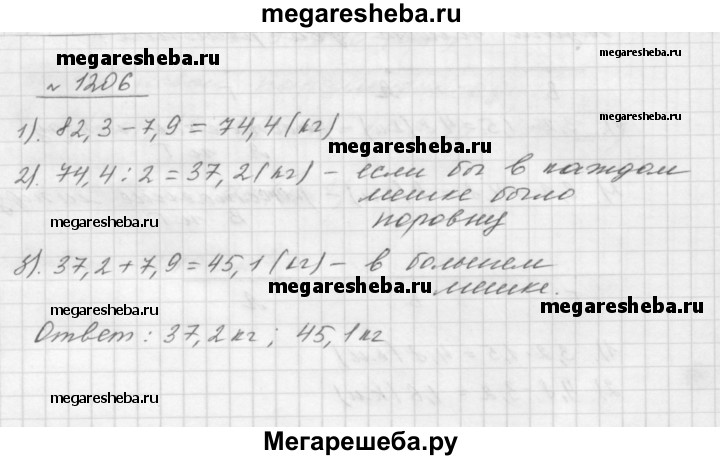 megaresheba.ru
megaresheba.ru
megaresheba.ru
№ 1206
1). 82,3 – 7,9 = 74,4 (кг)
megaresheba.ru
2). 74,4 : 2 = 37,2 (кг) – если бы в каждом
мешке было
megaresheba.ru
поровну
3). 37,2 + 7,9 = 45,1 (кг) – в большем
мешке.
megaresheba.ru
megaresheba.ru
megaresheba.ru
Ответ: 37,2 кг; 45,1 кг
megaresheba.ru
megaresheba.ru
Мегарешеба.ру